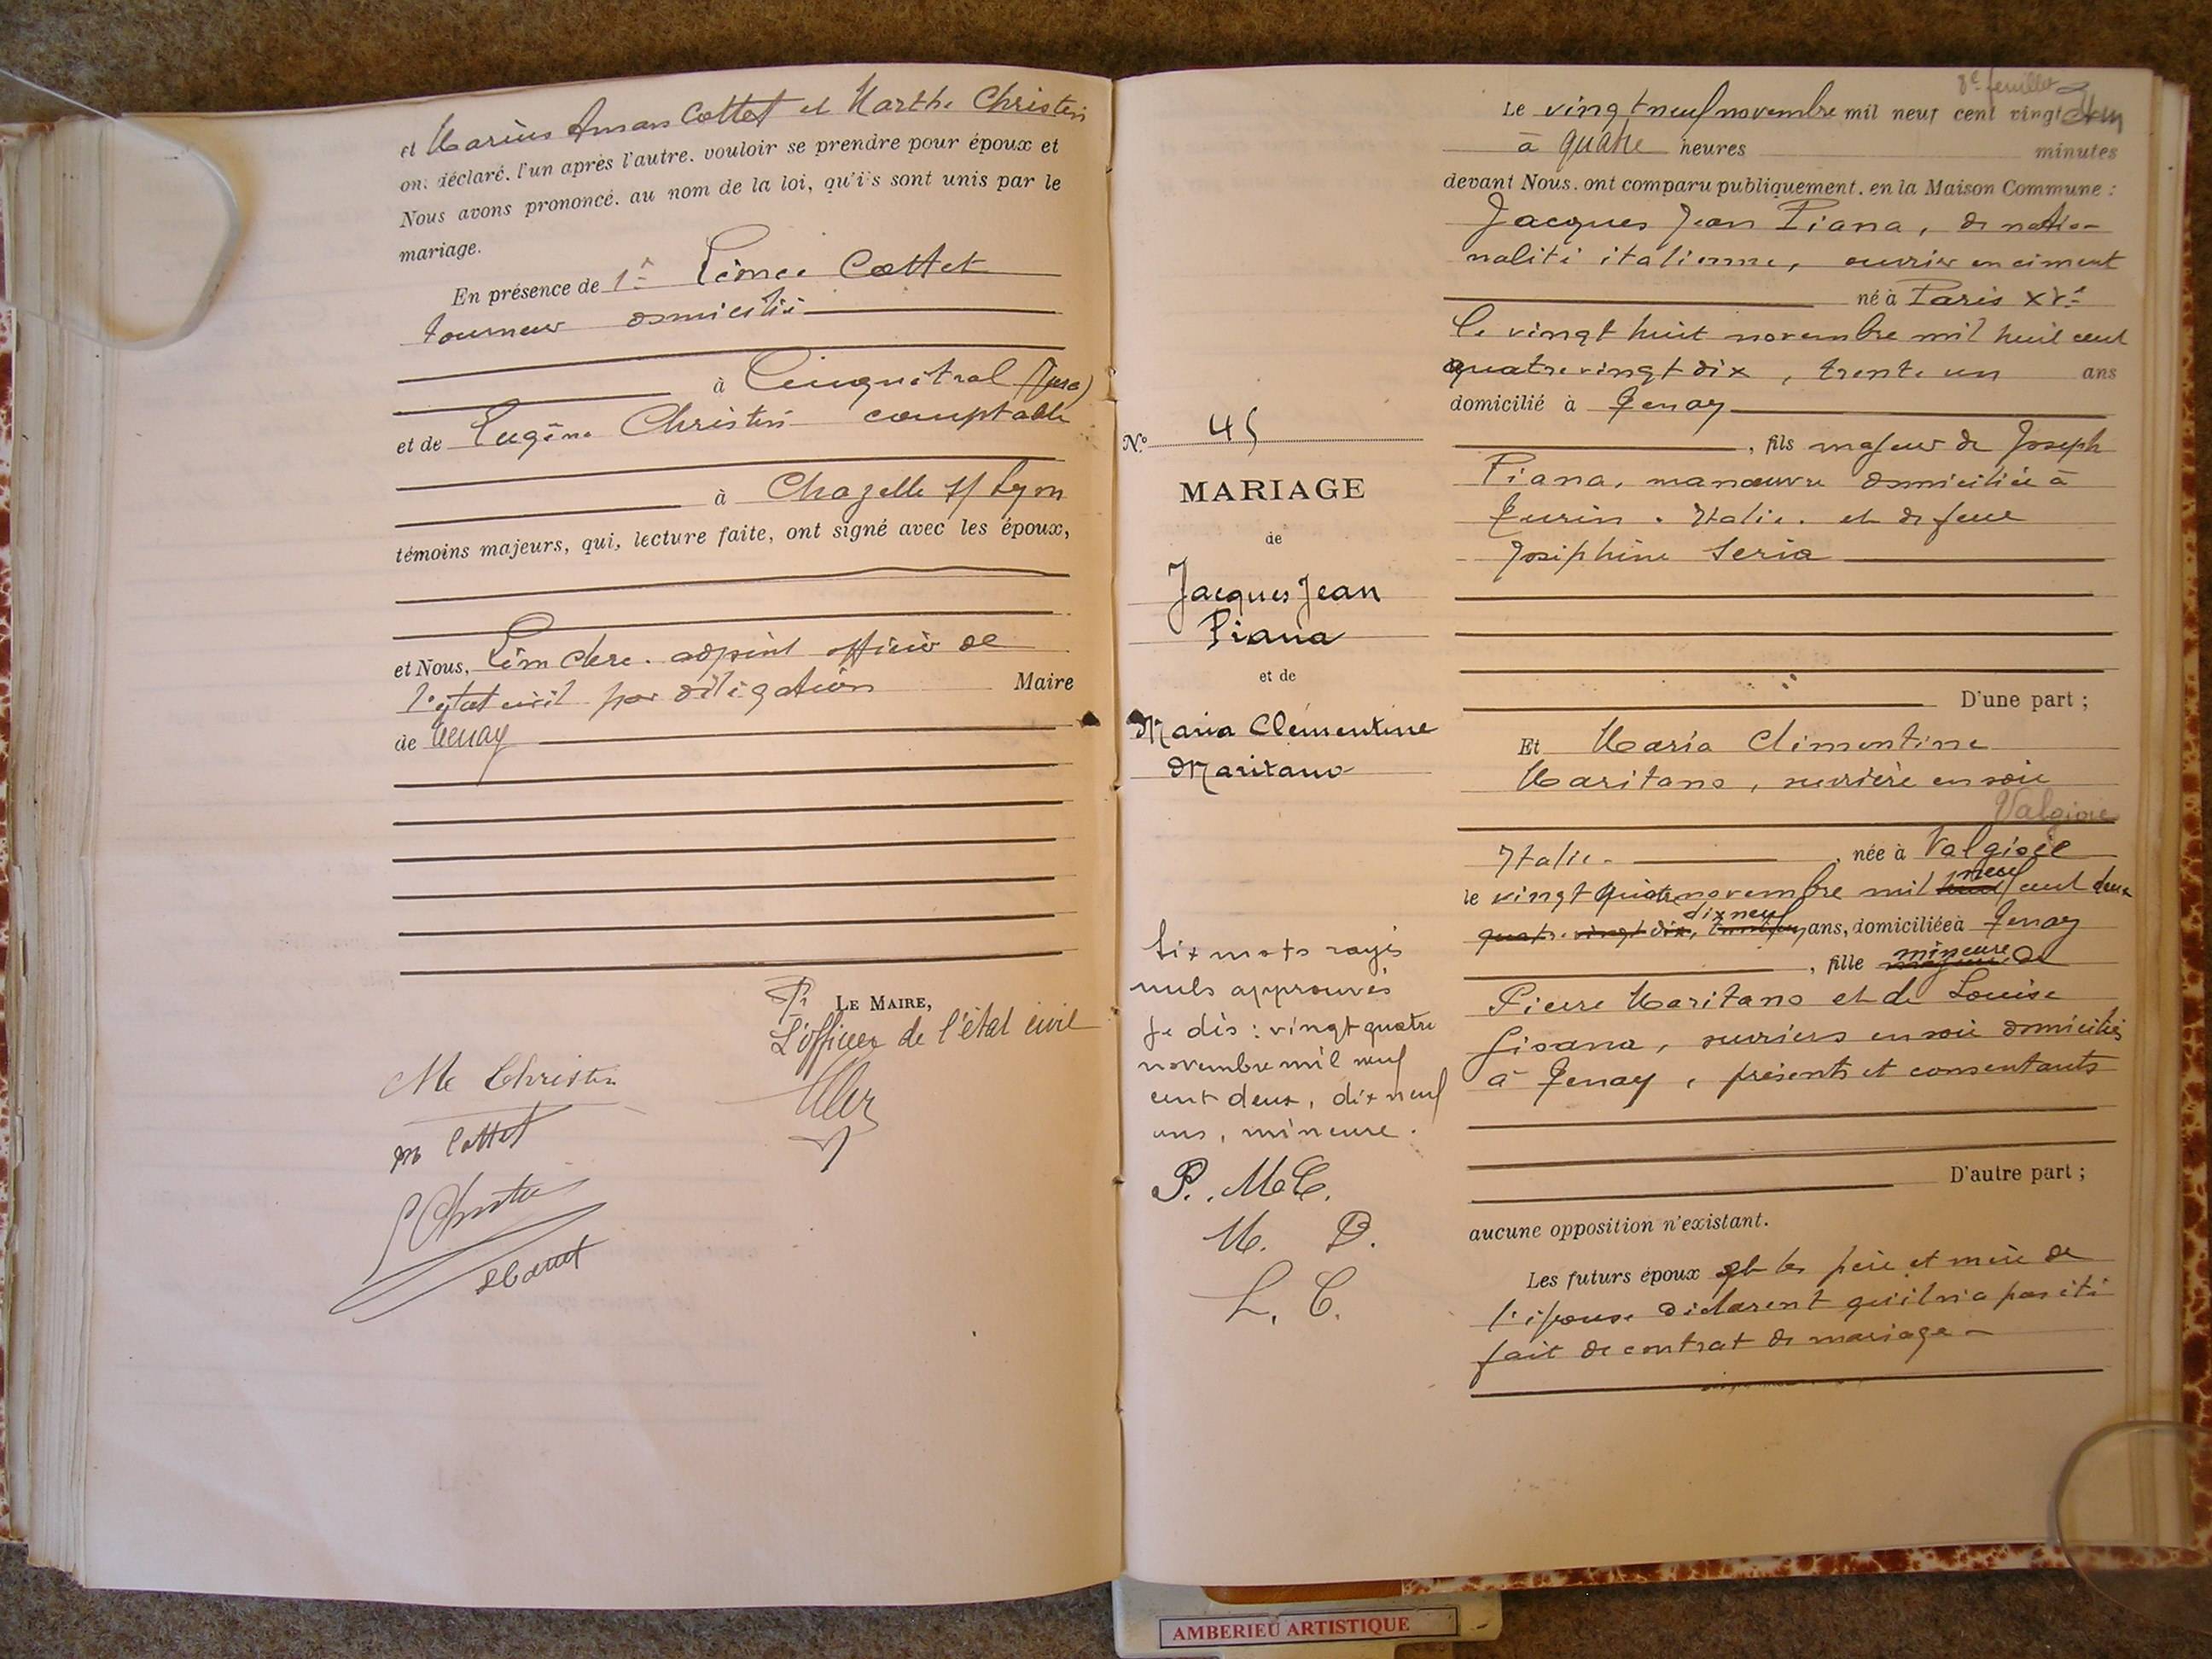 et Marius Aman Cottet et Marthe Christin
ont déclaré, l'un après l'autre, vouloir se prendre pour époux et
Nous avons prononcé, au nom de la loi, qu'ils sont unis par le
mariage.
En présence de 1° Léonce Cottet
tourneur domicilié
à Cinquétral (Jura)
et de Eugène Christin comptable
à Chazelle s/ Lyon
témoins majeurs, qui, lecture faite, ont signé avec les époux,
et Nous, Léon adjoint officier de
l'état civil par délégation Maire
de Tenay
Pr LE MAIRE,
L'officier de l'état civil
Me Christin
m Cottet
Christin
8e feuillet
Le vingt neuf novembre mil neuf cent vingt et un
à quatre heures minutes
devant Nous, ont comparu publiquement, en la Maison Commune :
Jacques Jean Piana, de natio-
nalité italienne, ouvrier en ciment
né à Paris XVe
le vingt huit novembre mil huit cent
quatre vingt dix, trente un ans
domicilié à Tenay
, fils majeur de Joseph
Piana, manœuvre domiciliée à
Turin. Italie. et de feue
Joséphine Seria
D'une part ;
Et Maria Clémentine
Maritano, ouvrière en soie
Valgioie
Italie. , née à Valgioie
le vingt quatre novembre mil neuf cent deux
quatre vingt dix, dix neuf ans, domiciliée à Tenay
, fille mineure de
Pierre Maritano et de Louise
Gisana, ouvriers en soie domiciliés
à Tenay, présents et consentants
D'autre part ;
aucune opposition n'existant.
Les futurs époux et les père et mère de
l'épouse déclarent qu'il n'a pas été
fait de contrat de mariage
N° 45
MARIAGE
de
Jacques Jean
Piana
et de
Maria Clémentine
Maritano
Six mots rayés
nuls approuvés
Je dis : vingt quatre
novembre mil neuf
cent deux, dix neuf
ans, mineure.
P. M.C.
M. P.
L. C.
AMBERIEU ARTISTIQUE